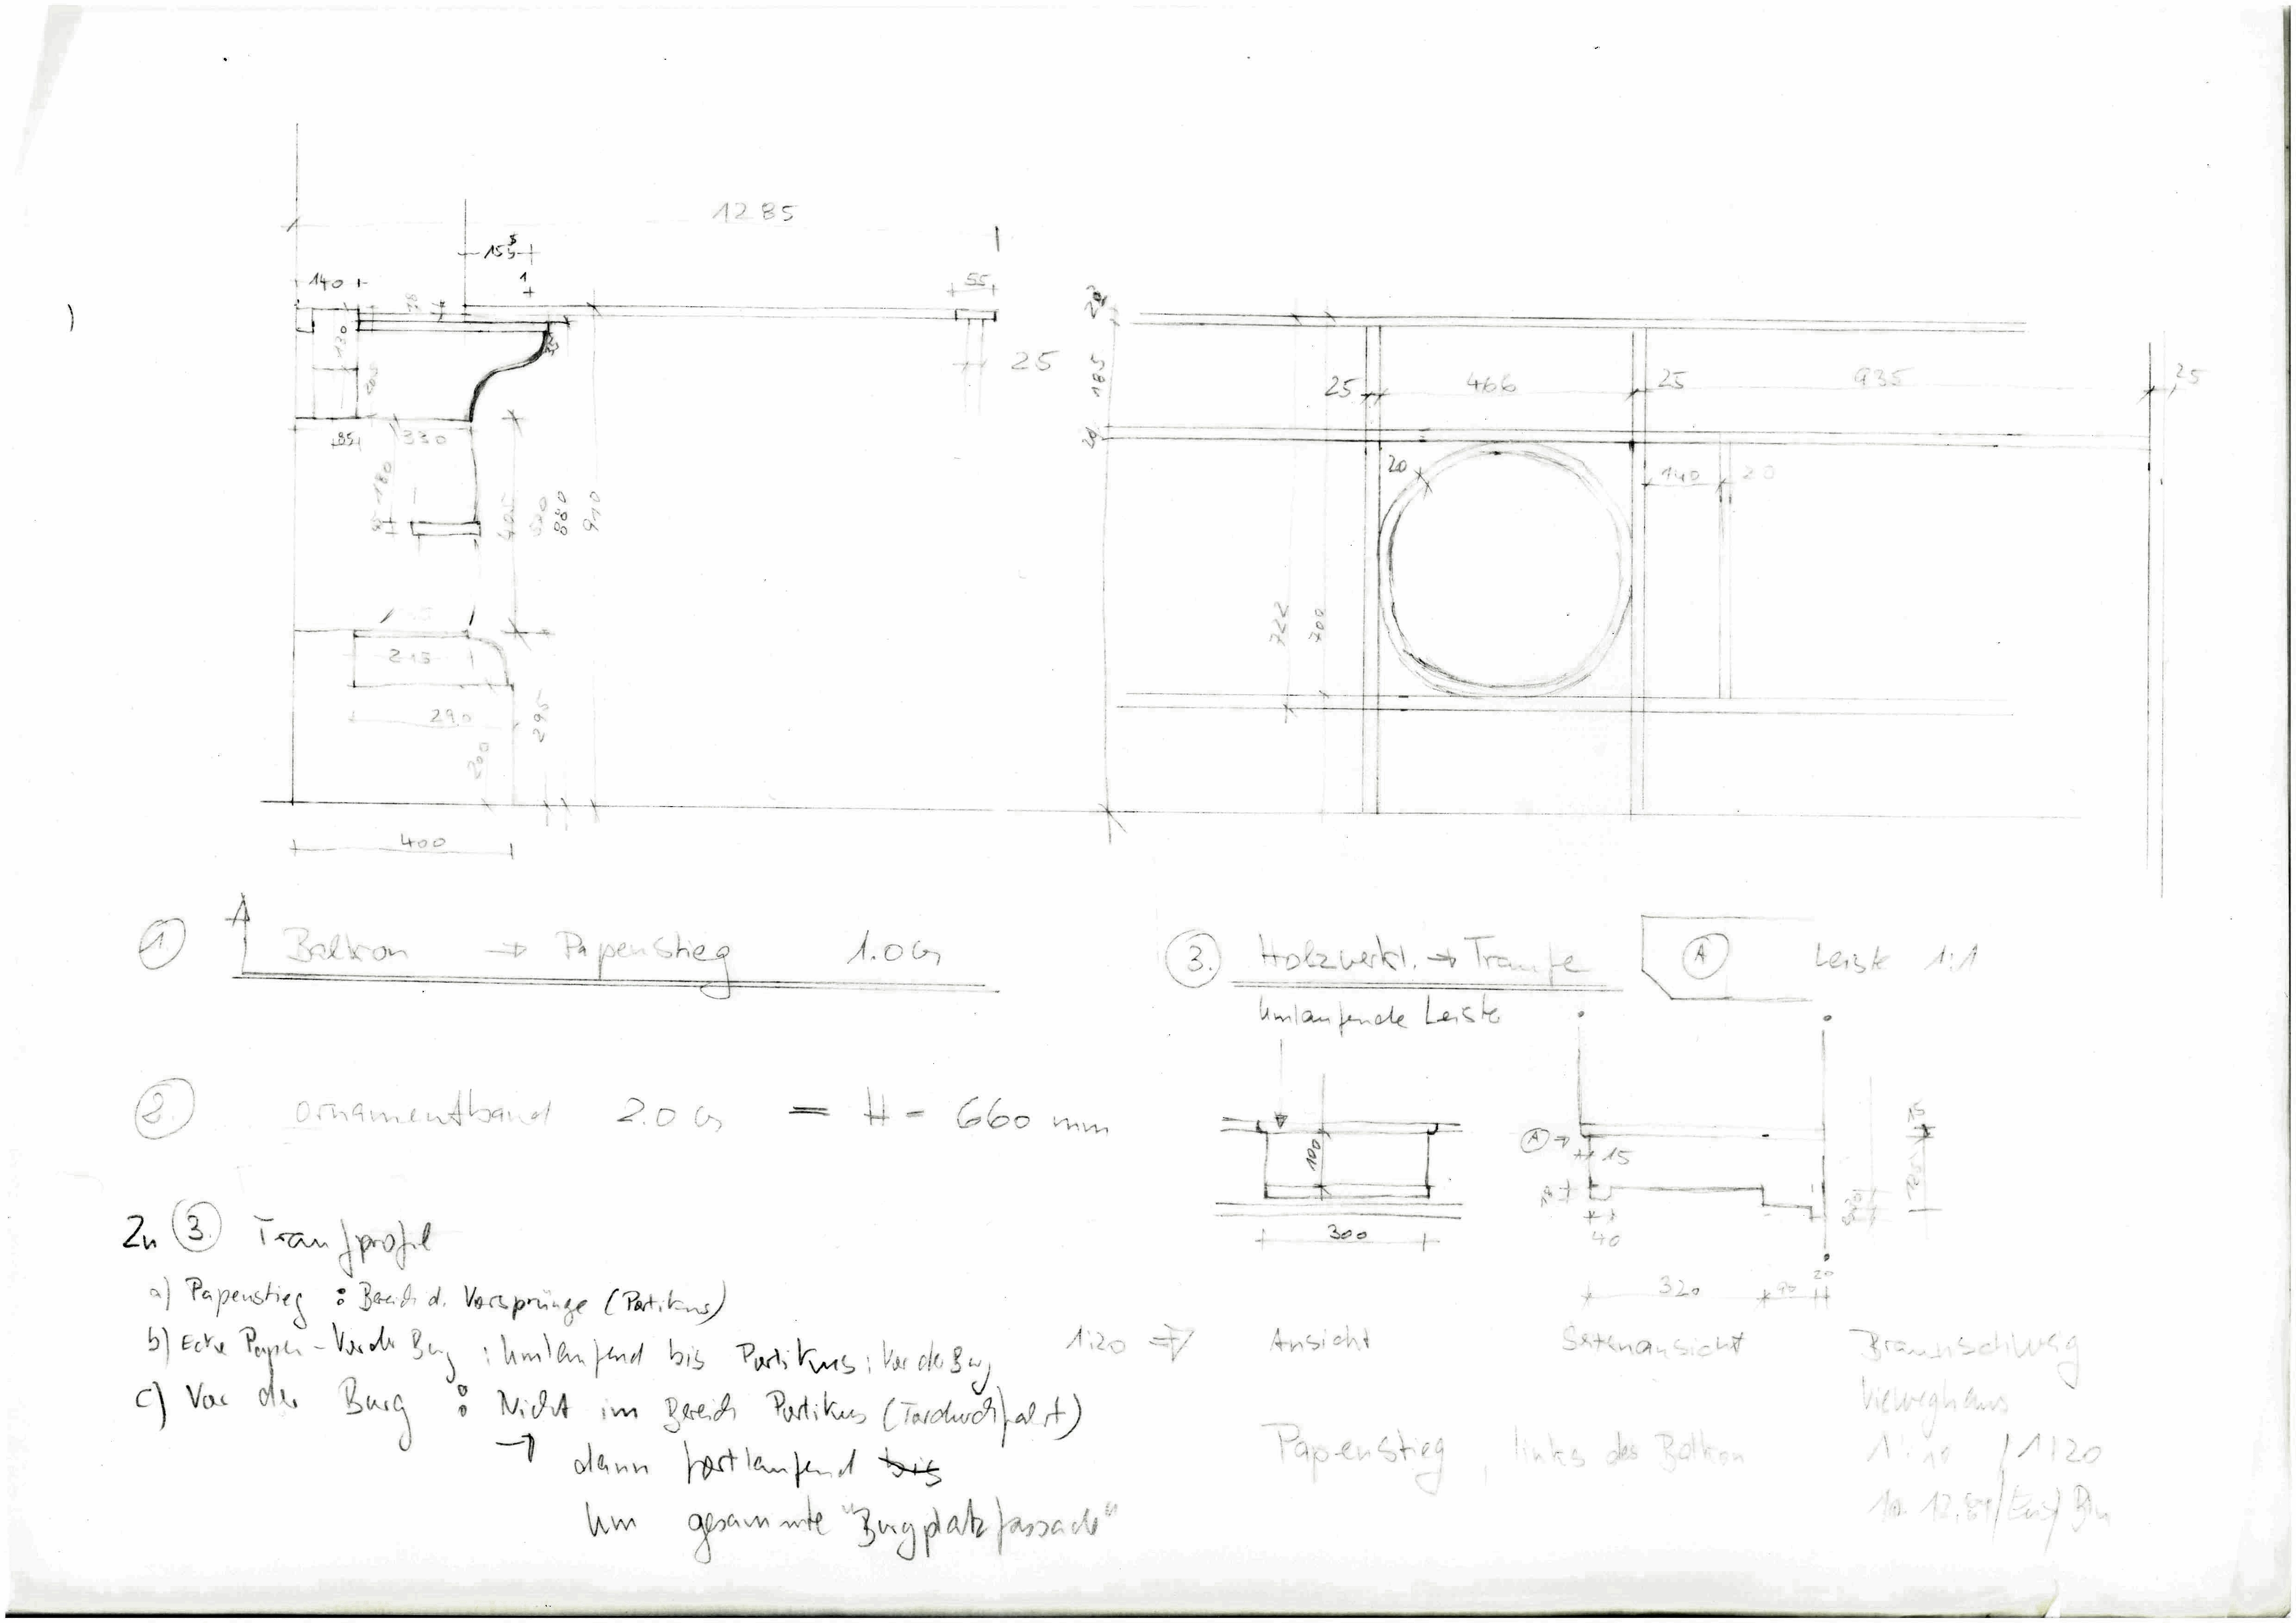 1285
155
140
55
25
130
85
330
180
405
880
910
215
290
295
200
400
20
185
20
25
466
25
935
25
20
140
20
722
700
1 Balkon → Papenstieg 1.OG
3. Holzwerkl. → Traufe
A Leiste 1:1
Umlaufende Leiste
2. Ornamentband 2.OG = H = 660 mm
A → 15
15
100
300
40
320 90 20
Zu 3. Traufprofil
a) Papenstieg : Bereich d. Vorsprünge (Portikus)
b) Ecke Papen - Vor der Burg : Umlaufend bis Portikus : Vor der Burg
c) Vor der Burg : Nicht im Bereich Portikus (Tordurchfahrt)
→ dann fortlaufend bis
um gesammte "Burgplatzfassade"
1:20 ⇒ Ansicht Seitenansicht
Papenstieg, links des Balkon
Braunschweig
Vieweghaus
1:10 / 1:20